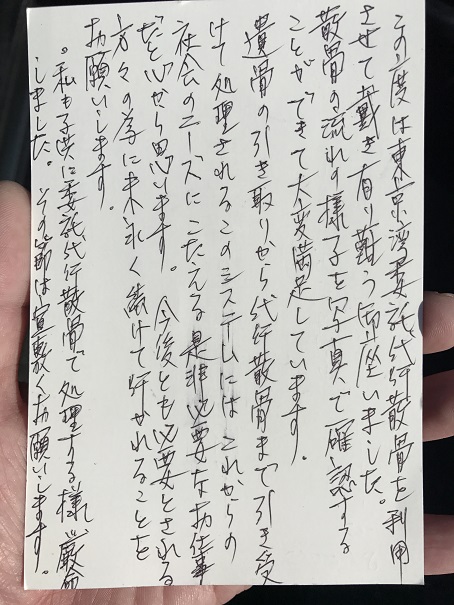 この度は東京湾委託代行散骨を利用
させて戴き有り難う御座いました。
散骨の流れの様子を写真で確認する
ことができて大変満足しています。
遺骨の引き取りから代行散骨まで引き受
けて処理されるこのシステムにはこれからの
社会のニーズにこたえる是非必要なお仕事
だと心から思います。今後とも必要とされる
方々の為に末永く続けて行かれることを
お願いします。
。私も子供に委託代行散骨で処理する様厳命
しました。その節は宜敷くお願いします。